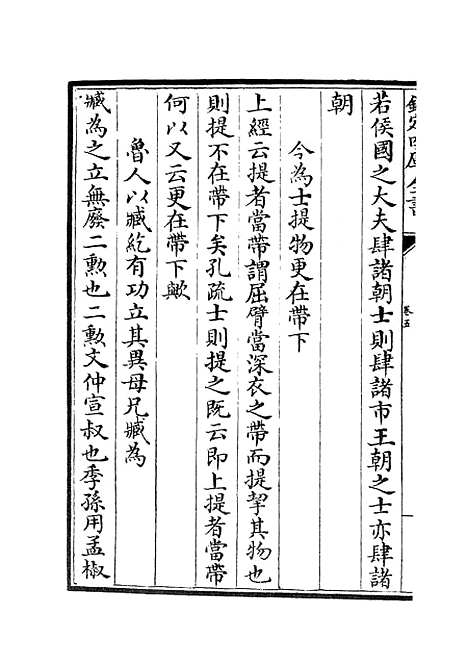 欽定四庫全書
卷五
若侯國之大夫肆諸朝士則肆諸市王朝之士亦肆諸
朝
今為士提物更在帶下
上經云提者當帶謂屈臂當深衣之帶而提挈其物也
則提不在帶下矣孔疏士則提之既云即上提者當帶
何以又云更在帶下歟
魯人以臧紇有功立其異母兄臧為
臧為之立無廢二勲也二勲文仲宣叔也季孫用孟椒